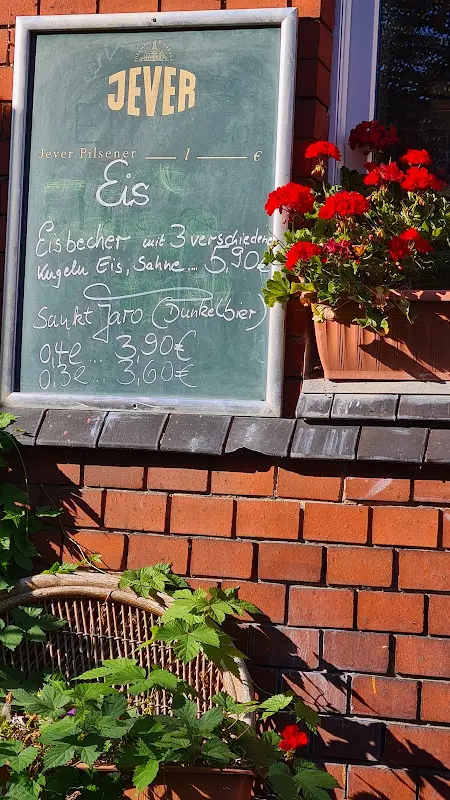 JEVER
Jever Pilsener — l — €
Eis
Eisbecher mit 3 verschiedenen
Kugeln Eis, Sahne... 5,90€
Sankt Jaro (Dunkelbier)
0,4l... 3,90€
0,3l... 3,60€